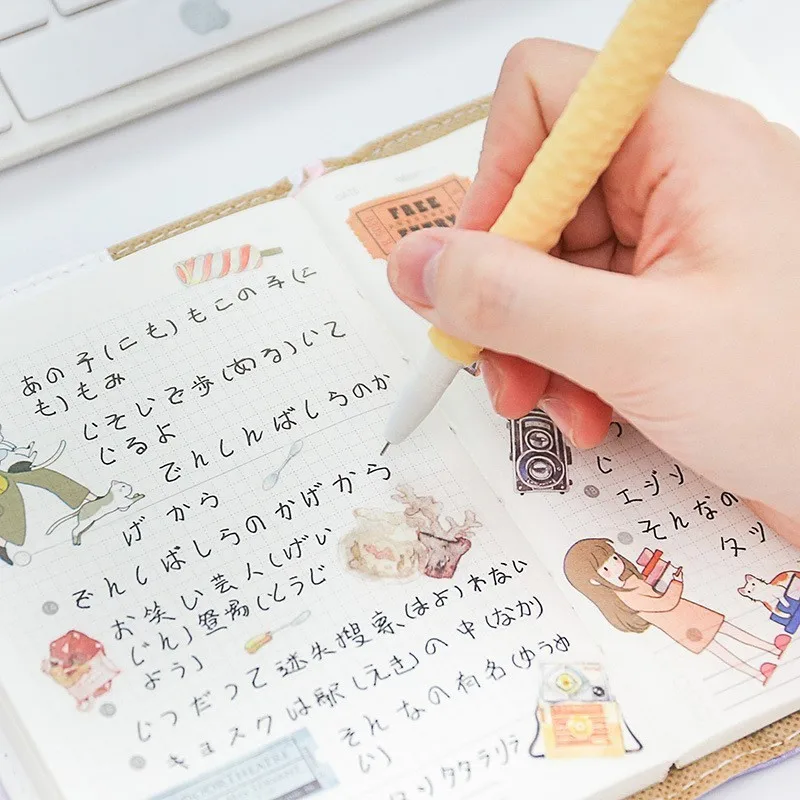 FREE
ENTRY
あの子(こも)もこの子(こ
も)もみ
じそじそ歩(ある)いて
じるよ
でんしんばしらのか
げから
でんしばしらのかげから
お笑い芸人(げい
じん)登場(とうじ
よう)
じつだって迷失搜索(まよ)わない
キョスクは駅(えき)の中(なか)
そんなの有名(ゆうめ
い)
タソタタラリラ
じ
エジソ
そんなの
タツ